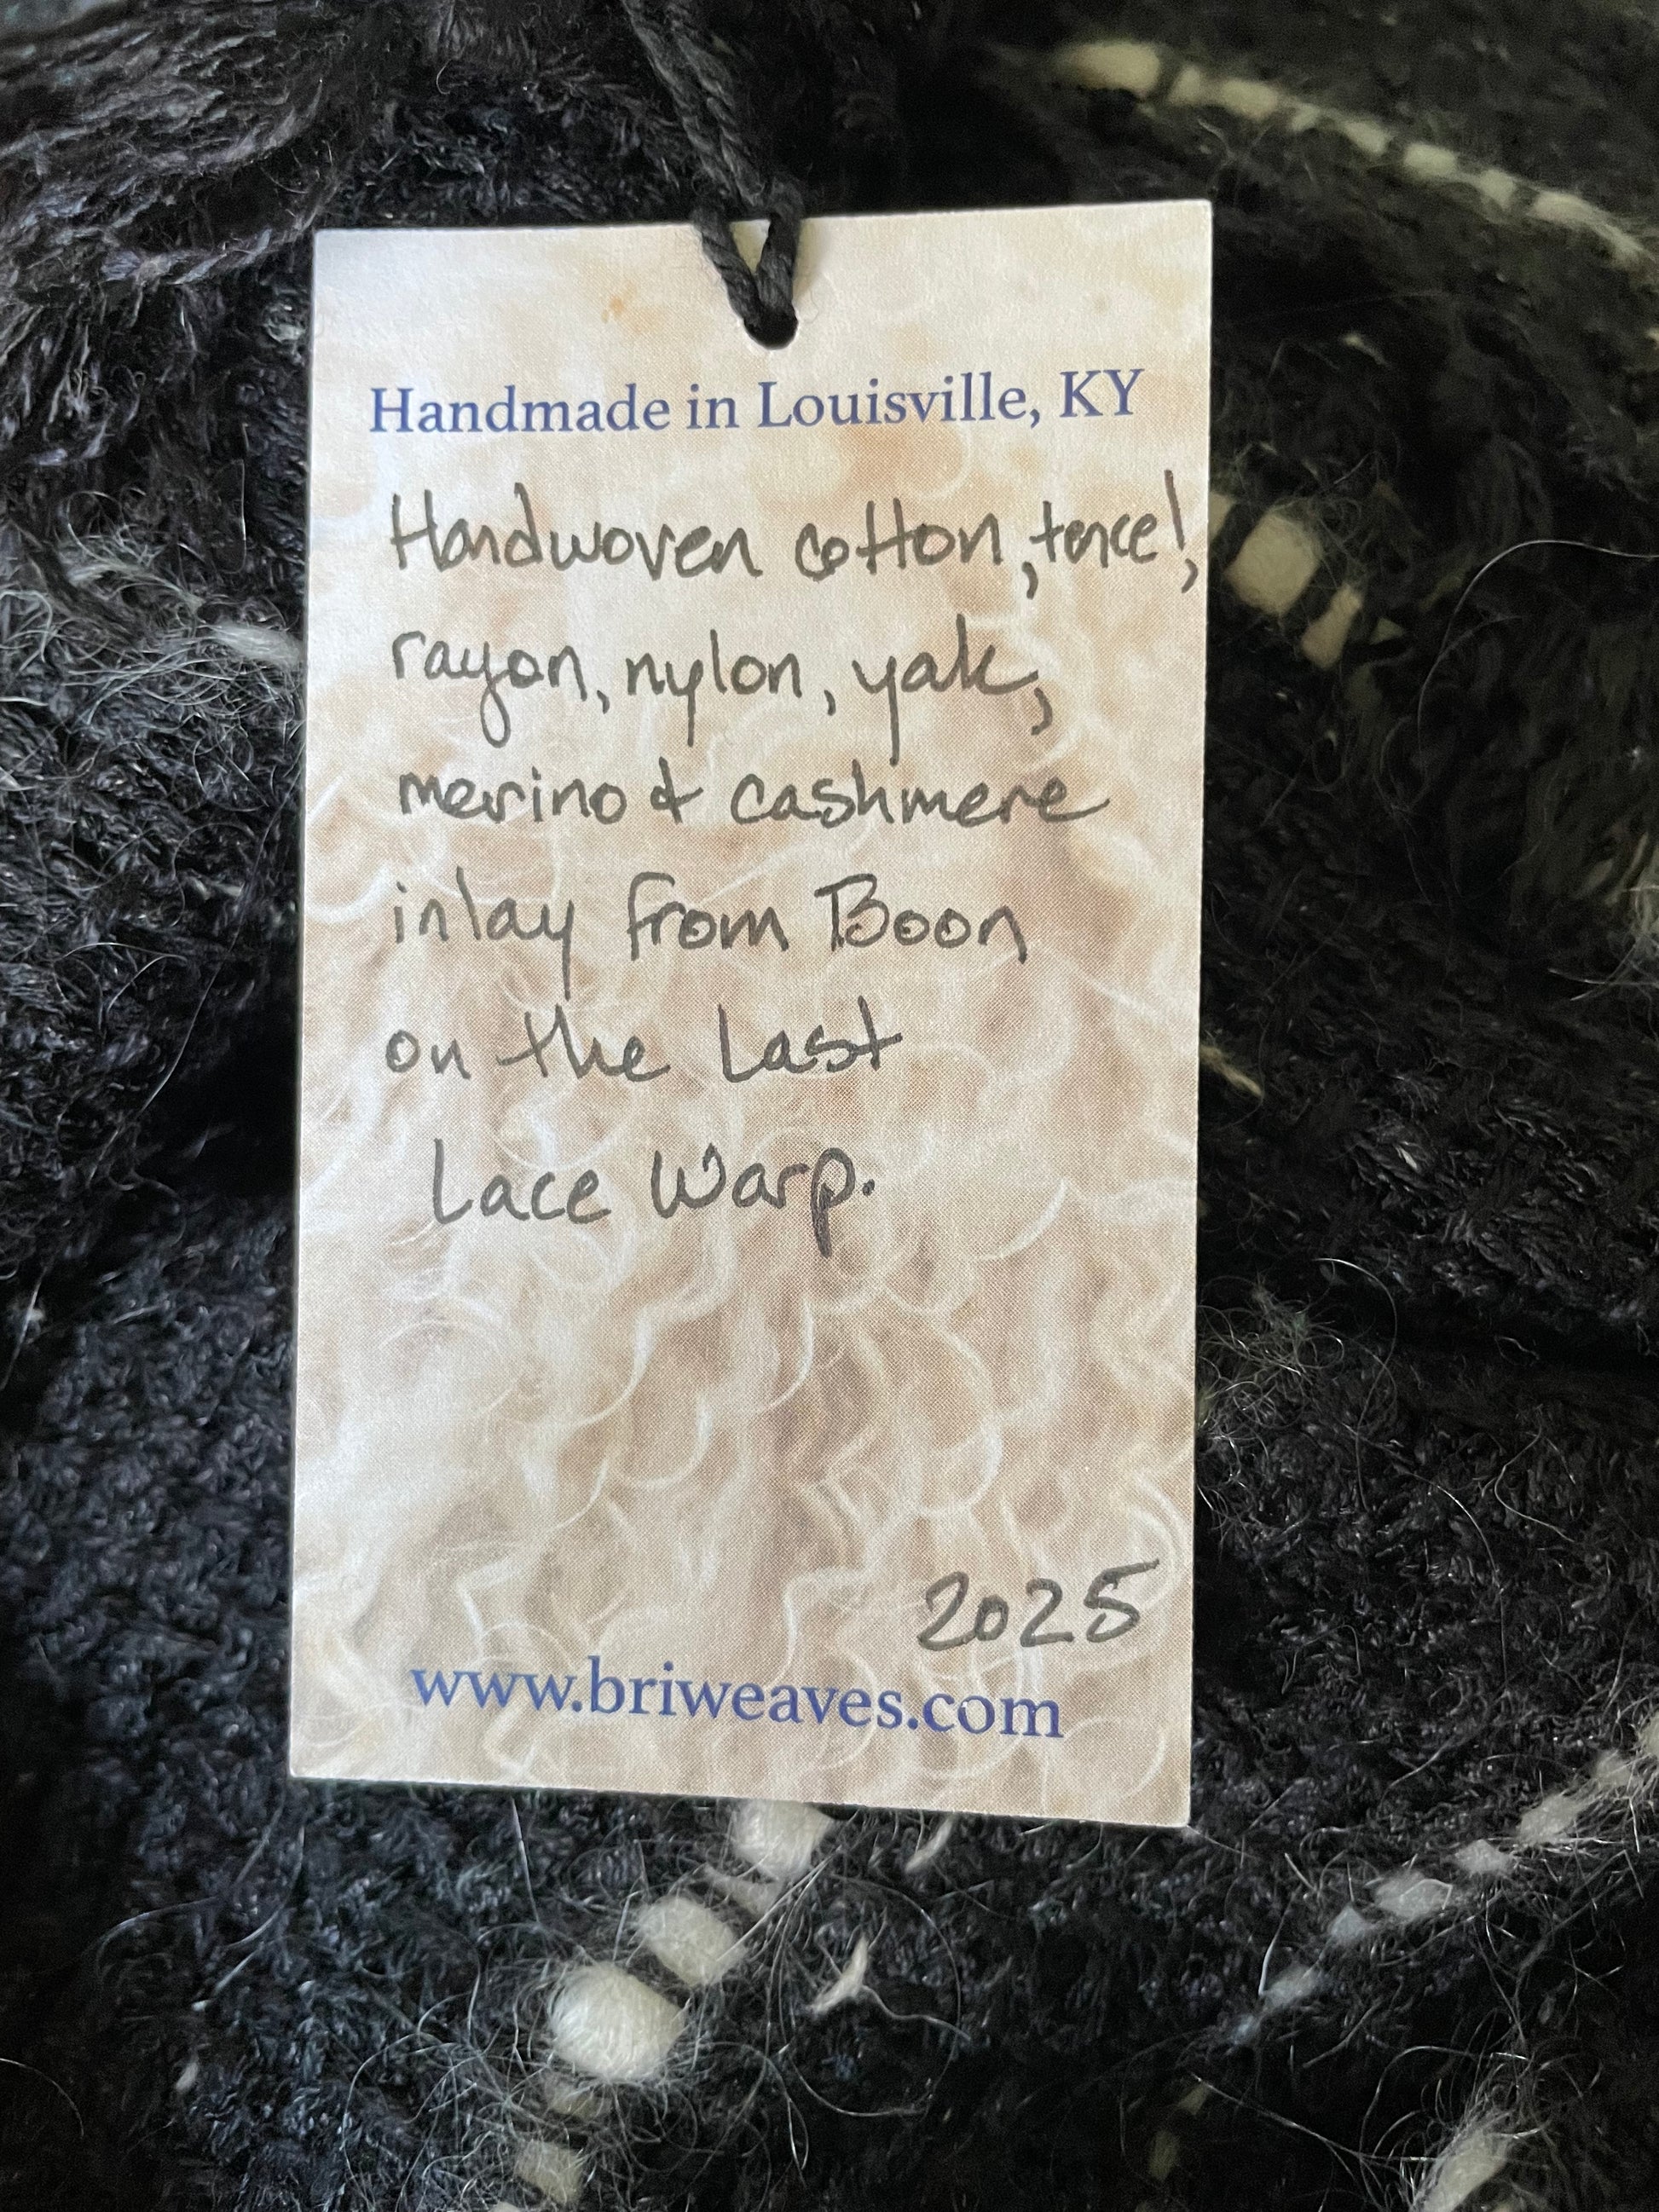 Handmade in Louisville, KY
Handwoven cotton, tencel,
rayon, nylon, yak,
merino & cashmere
inlay from Boon
on the Last
Lace Warp.
2025
www.briweaves.com